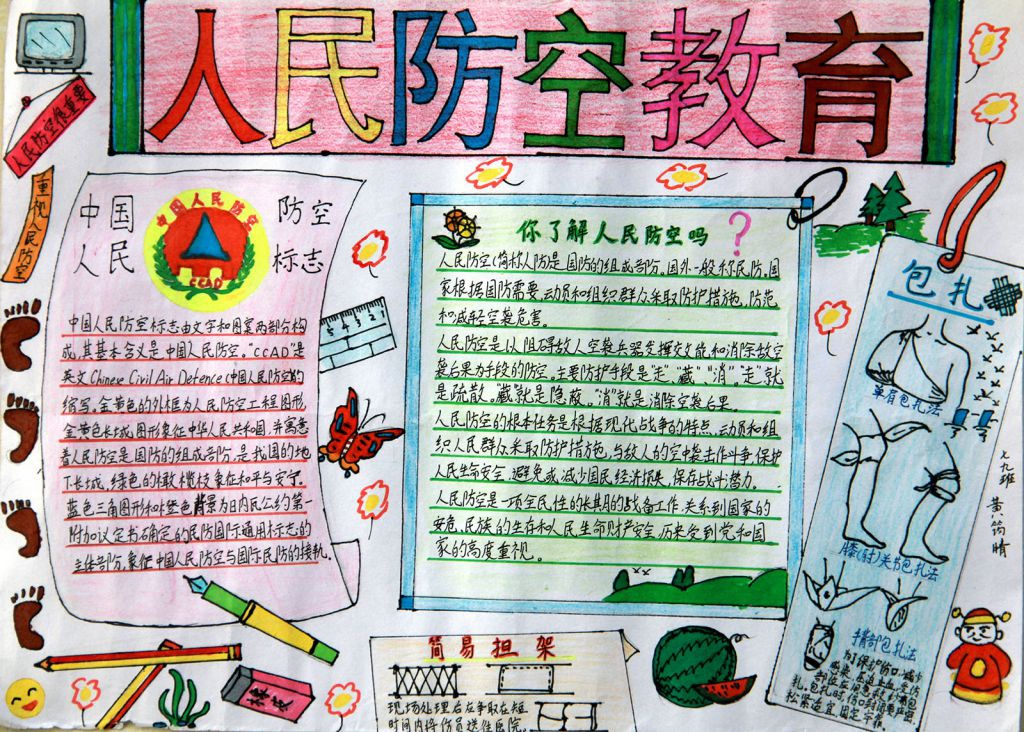 人民防空教育
人民防空很重要
重视人民防空
中国 防空
人民 标志
中国人民防空
CCAD
中国人民防空标志由文字和图案两部分构
成,其基本含义是中国人民防空。“CCAD”是
英文Chinese Civil Air Defence(中国人民防空)的
缩写。金黄色的外框为人民防空工程图形,
金黄色长城图形象征中华人民共和国,并寓意
着人民防空是国防的组成部分,是我国的地
下长城,绿色的橄榄枝象征和平与安宁。
蓝色三角图形和橙色背景为日内瓦公约第一
附加议定书确定的民防国际通用标志的
主体部分,象征中国人民防空与国际民防的接轨。
5 4 3 2 1
你了解人民防空吗?
人民防空(简称人防)是国防的组成部分,国外一般称民防。国
家根据国防需要,动员和组织群众采取防护措施,防范
和减轻空袭危害。
人民防空是以阻碍敌人空袭兵器发挥效能,和消除敌空
袭后果为手段的防空。主要防护手段是“走”、“藏”、“消”。“走”就
是疏散。“藏”就是隐蔽。“消”就是消除空袭后果。
人民防空的根本任务是根据现代战争的特点,动员和组
织人民群众采取防护措施,与敌人的空中袭击作斗争,保护
人民生命安全,避免或减少国民经济损失,保存战斗势力。
人民防空是一项全民性的长期的战备工作,关系到国家的
安危,民族的生存和人民生命财产安全,历来受到党和国
家的高度重视。
包扎
单肩包扎法
膝(肘)关节包扎法
手背部包扎法
为保护伤口,减少
扎。包扎时伤口
松紧适宜,固定
七九班 黄筠晴
简易担架
现场处理后应争取在短
时间内将伤员送往医院。
橡皮